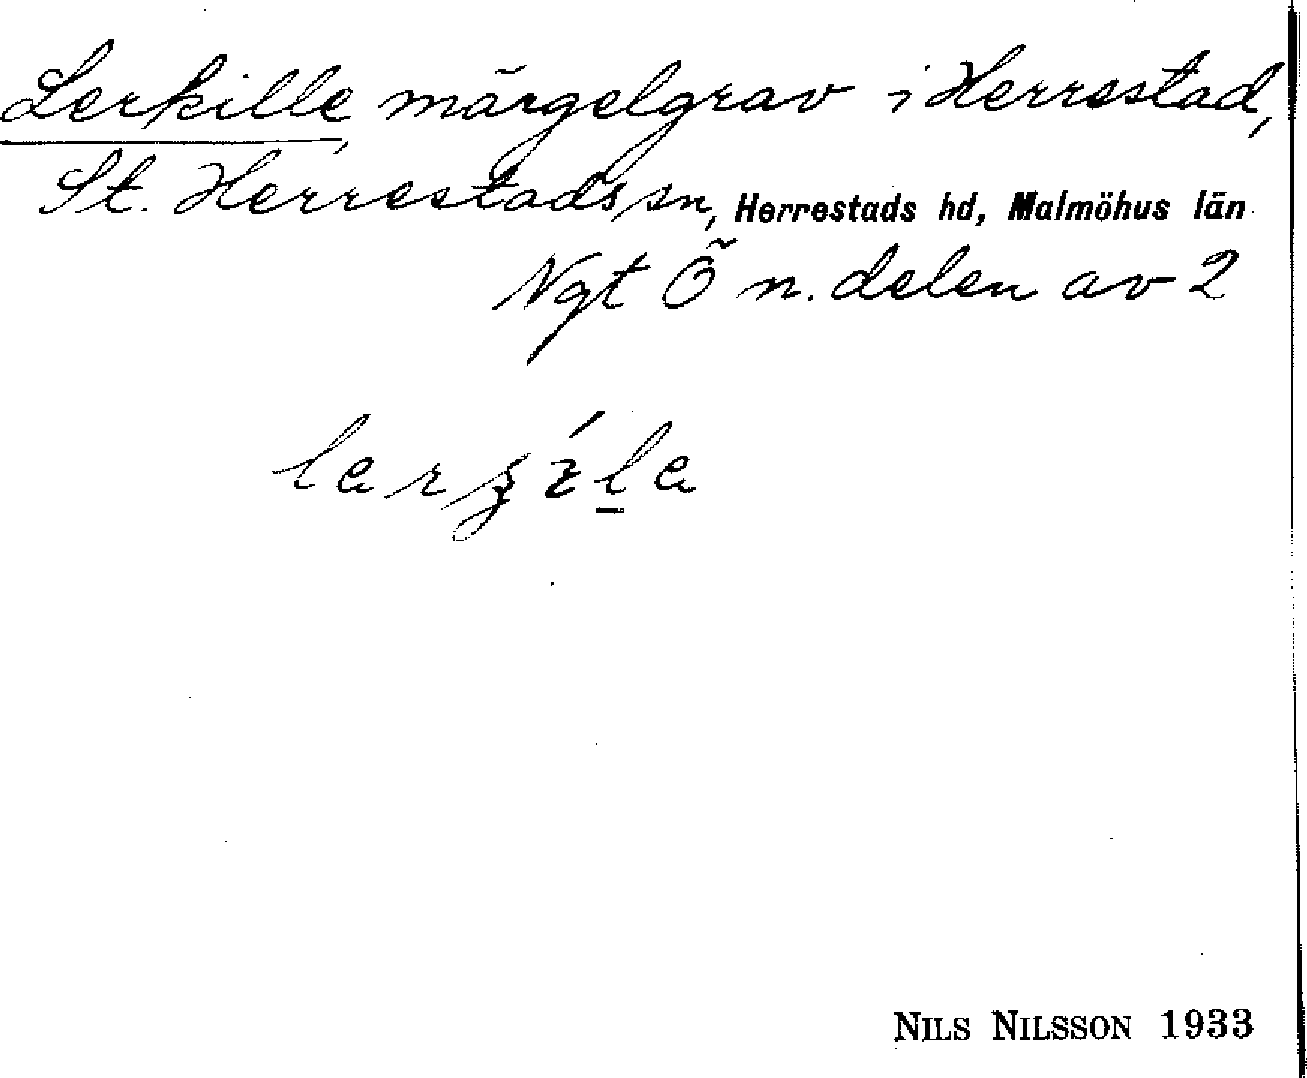 Lerkille, märgelgrav i Herrestad,
St. Herrestads sn, Herrestads hd, Malmöhus län
Ngt Ö n. delen av 2
NILS NILSSON 1933